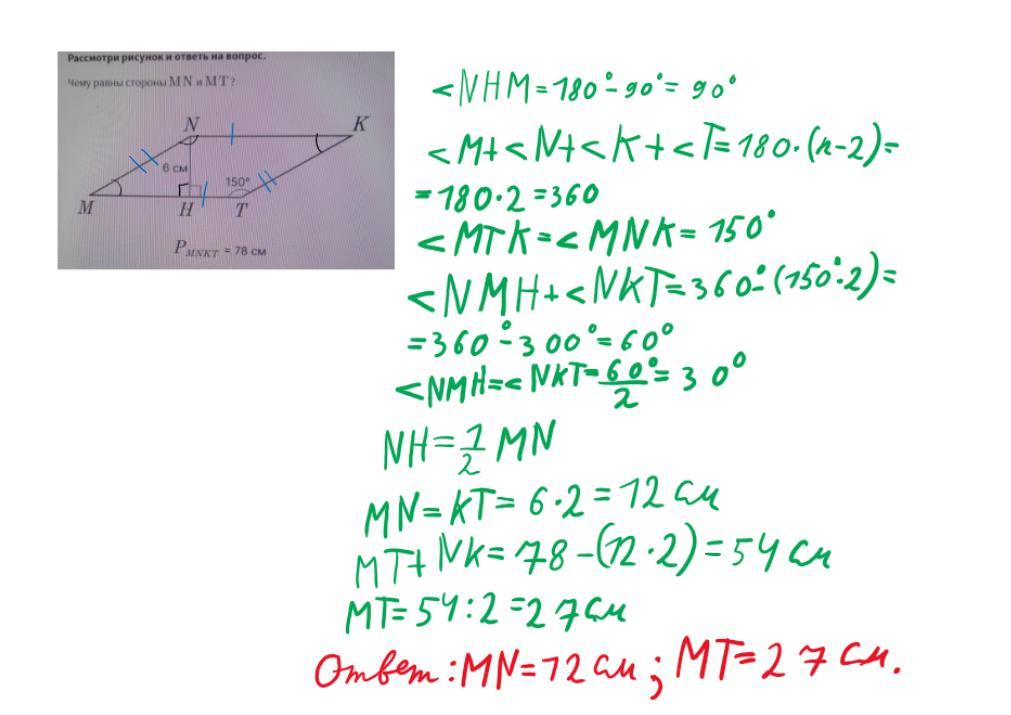 Рассмотри рисунок и ответь на вопрос.
Чему равны стороны MN и MT?
N
K
6 см
150°
M
H
T
P_MNKT = 78 см
<NHM=180°-90°=90°
<M+<N+<K+<T=180·(n-2)=
=180·2=360
<MTK=<MNK=150°
<NMH+<NKT=360°-(150°·2)=
=360°-300°=60°
<NMH=<NKT=60°/2=30°
NH=1/2 MN
MN=KT=6·2=12 см
MT+NK=78-(12·2)=54 см
MT=54:2=27 см
Ответ: MN=12 см; MT=27 см.